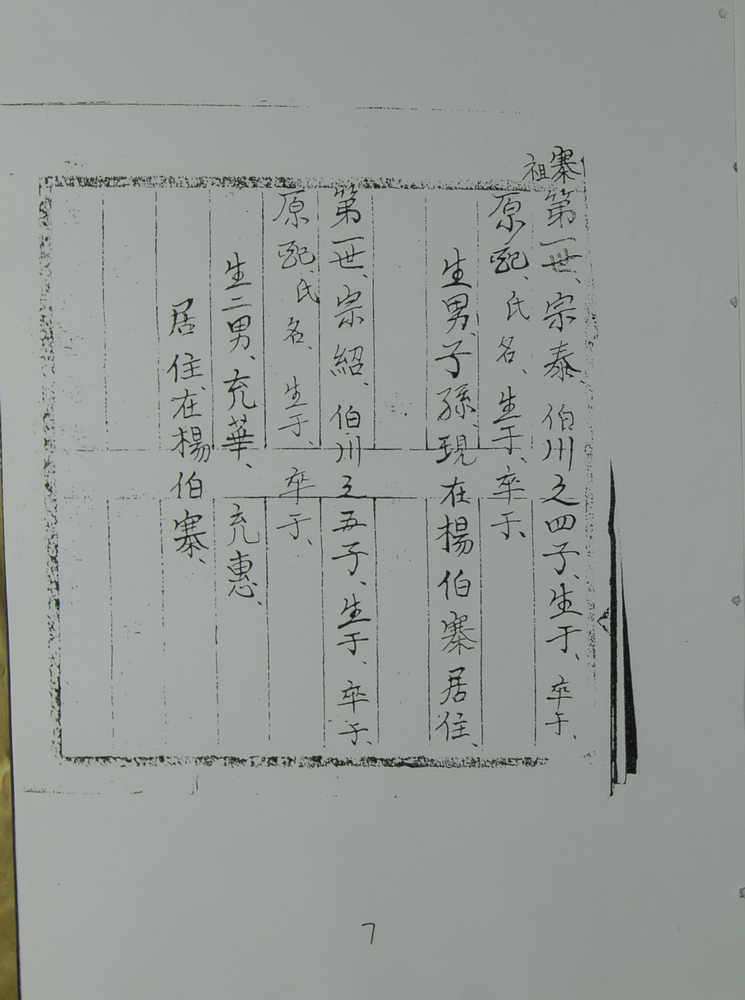 寨祖
第一世、宗泰、伯州之四子、生于、卒于、
原配、氏名、生于、卒于、
生男、子孫、現在楊伯寨居住、
第一世、宗紹、伯州之五子、生于、卒于、
原配、氏名、生于、卒于、
生二男、充華、充惠、
居住在楊伯寨、
7